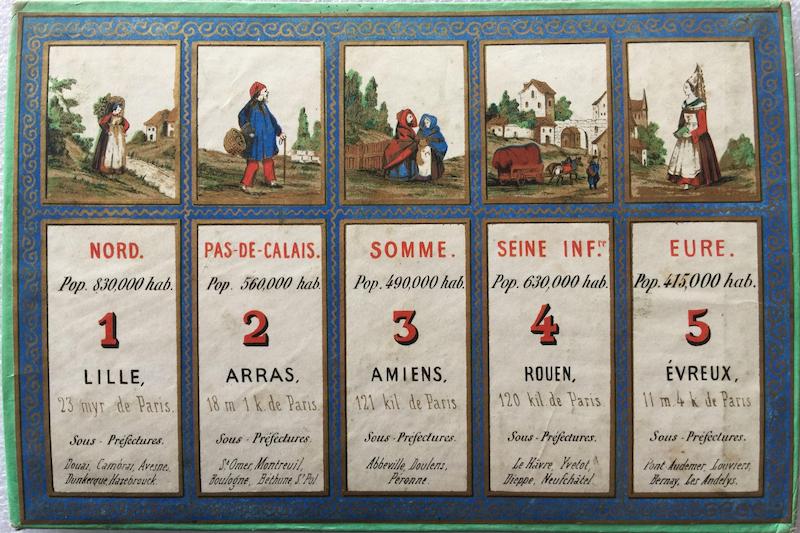 NORD.
Pop. 830,000 hab.
1
LILLE,
23 myr de Paris.
Sous-Préfectures.
Douai, Cambrai, Avesne,
Dunkerque, Hazebrouck.
PAS-DE-CALAIS.
Pop. 560,000 hab.
2
ARRAS,
18 m 1 k. de Paris.
Sous-Préfectures.
St Omer, Montreuil,
Boulogne, Béthune St Pol
SOMME.
Pop. 490,000 hab.
3
AMIENS,
121 kil. de Paris.
Sous-Préfectures.
Abbeville, Doulens,
Péronne.
SEINE INF.re
Pop. 630,000 hab.
4
ROUEN,
120 kil de Paris
Sous-Préfectures.
Le Hâvre, Yvetot,
Dieppe, Neufchâtel.
EURE.
Pop. 415,000 hab.
5
ÉVREUX,
11 m. 4 k de Paris
Sous-Préfectures.
Pont Audemer, Louviers,
Bernay, Les Andelys.